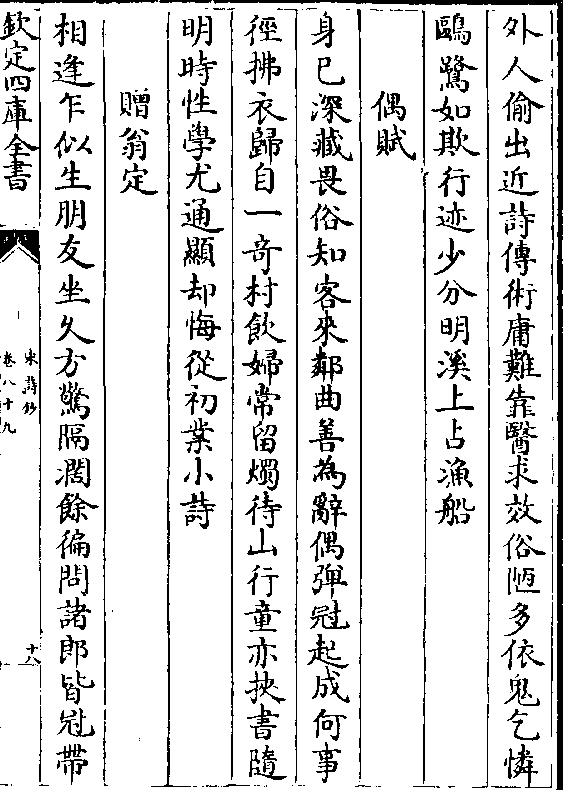 外人偷出近詩傳術庸難靠醫求效俗陋多依鬼乞憐
鷗鷺如欺行迹少分明溪上占漁船
偶賦
身已深藏畏俗知客來鄰曲善為辭偶彈冠起成何事
徑拂衣歸自一竒村飲婦常留燭待山行童亦挾書隨
明時性學尤通顯却悔從初業小詩
贈翁定
相逢乍似生朋友坐久方驚隔濶餘徧問諸郎皆冠帶
欽定四庫全書
宋詩鈔
卷八十九
十八